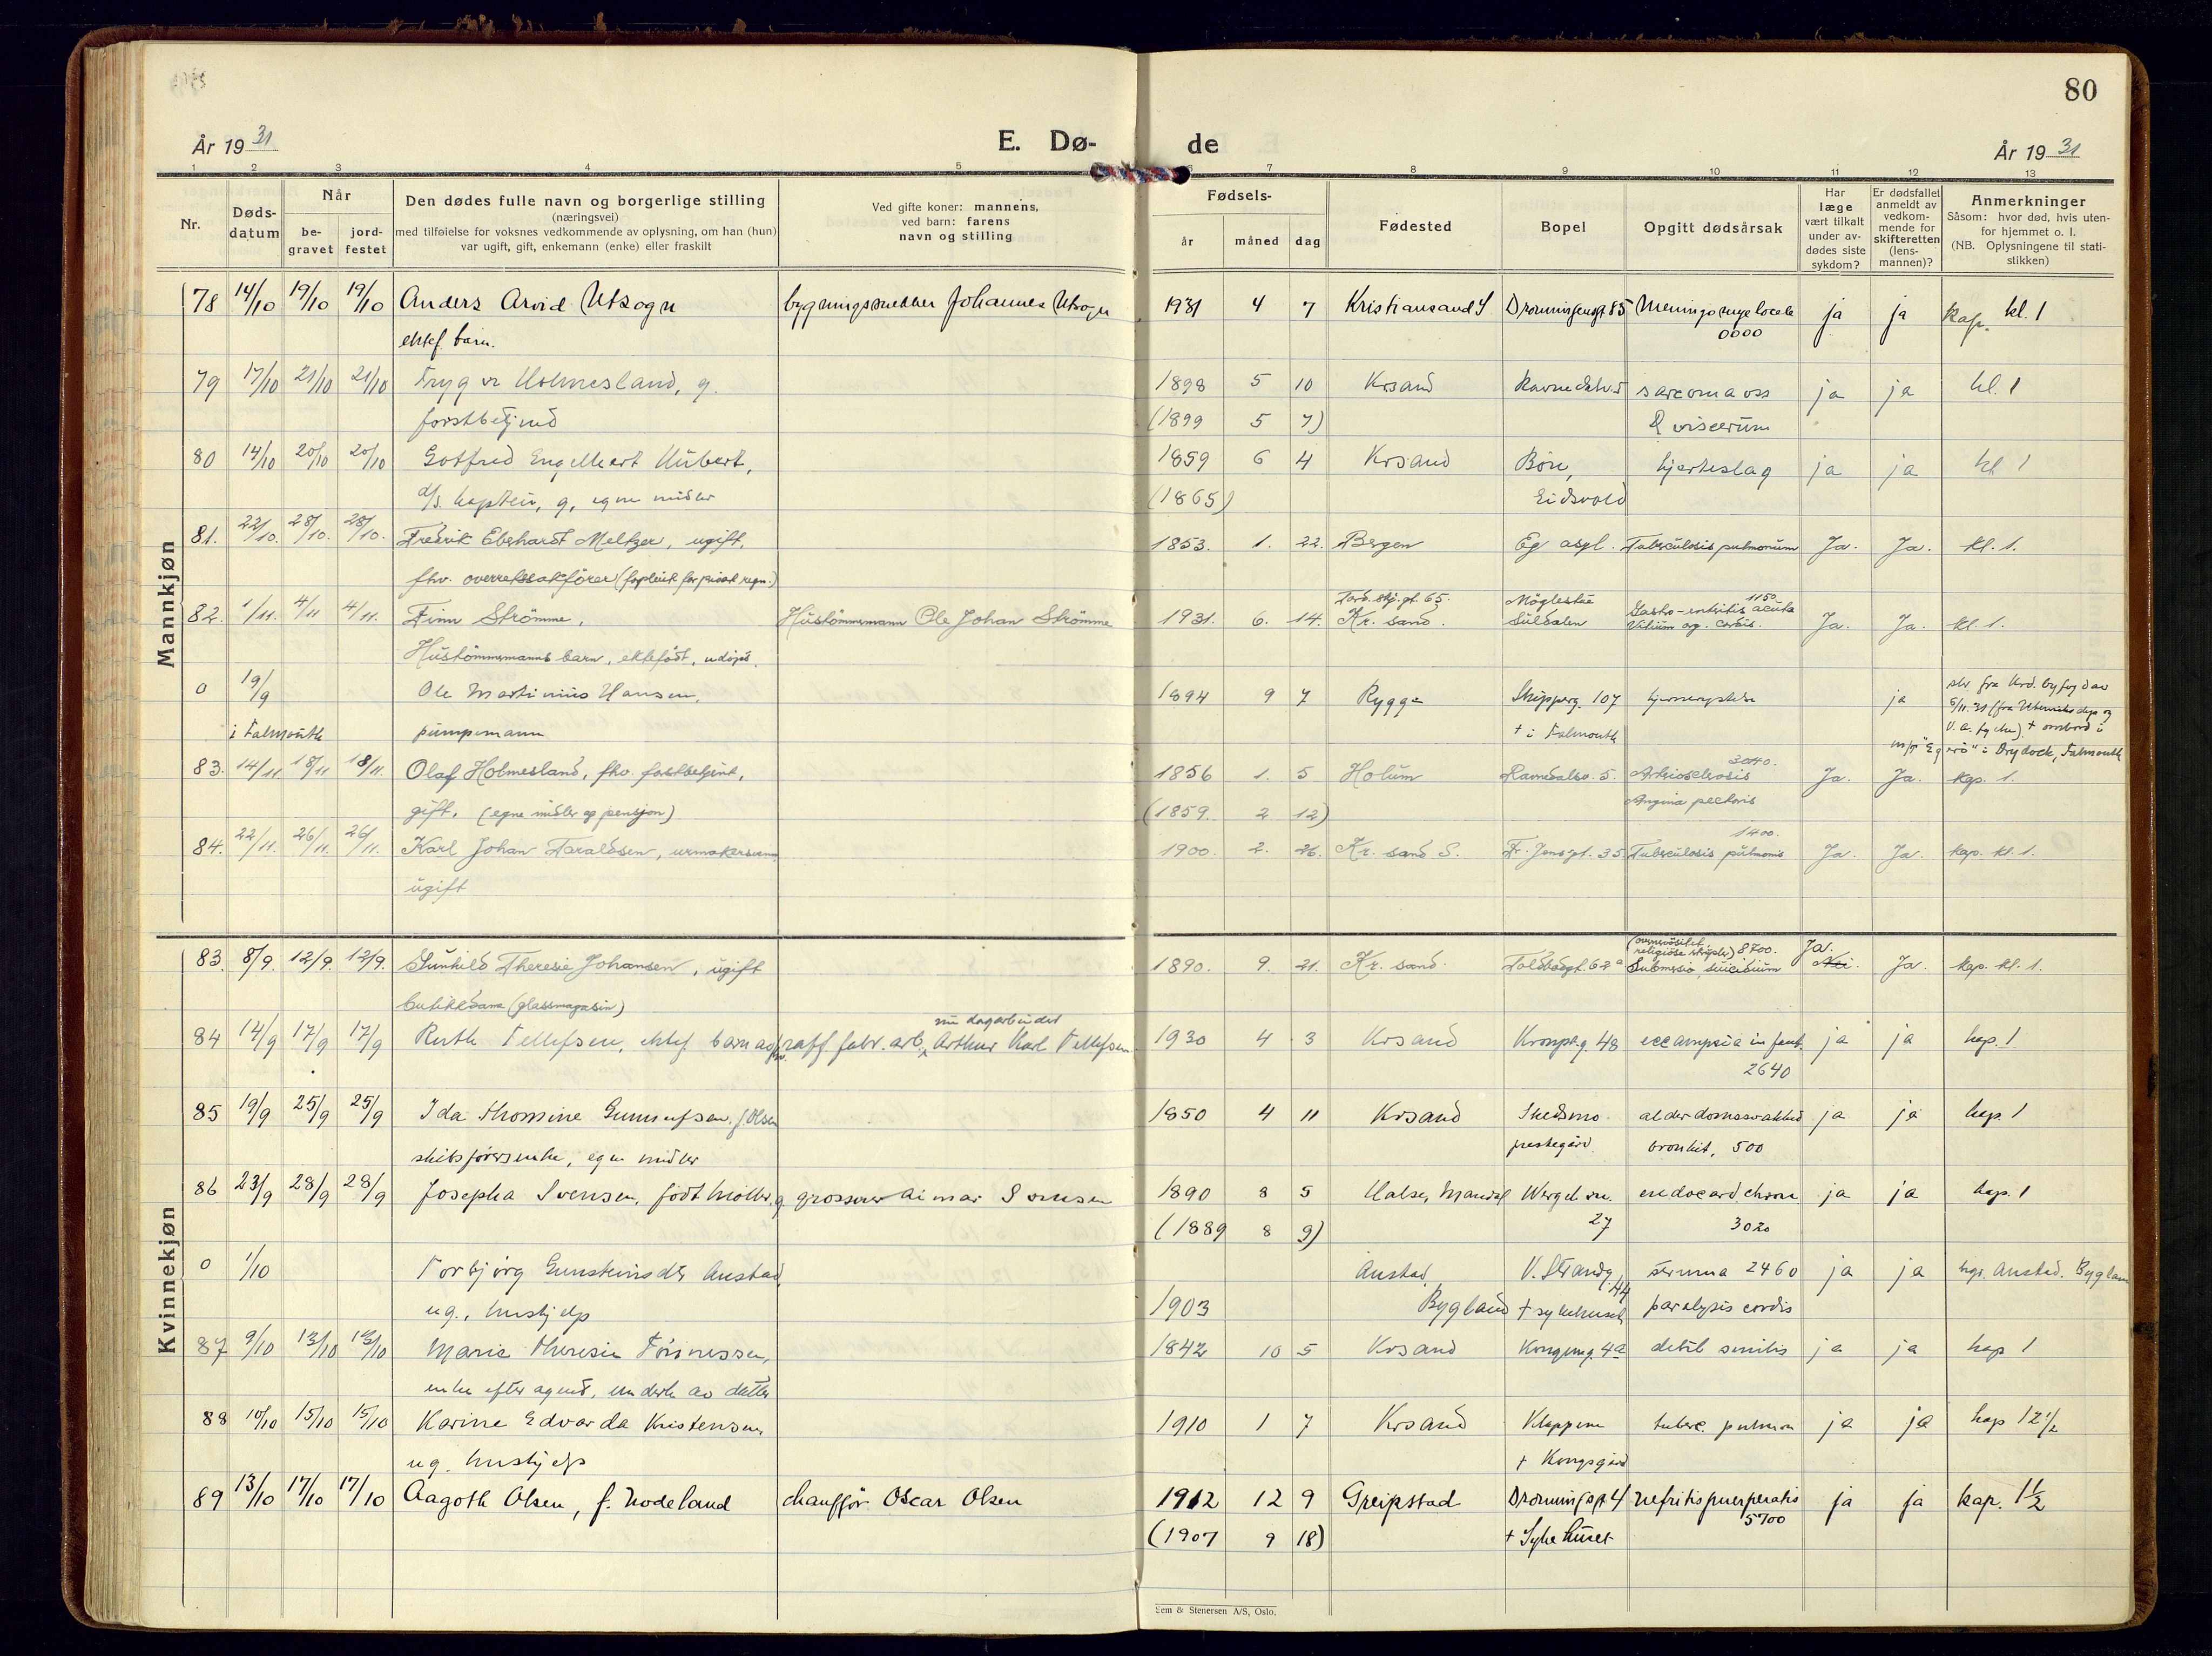 80
År 1931
E. Dø-
de
År 1931
1 2 3 4 5 7 8 9 10 11 12 13
Nr.
Døds-
datum
Når
be-
gravet
jord-
festet
Den dødes fulle navn og borgerlige stilling
(næringsvei)
med tilføielse for voksnes vedkommende av oplysning, om han (hun)
var ugift, gift, enkemann (enke) eller fraskilt
Ved gifte koner: mannens,
ved barn: farens
navn og stilling
Fødsels-
år
måned
dag
Fødested
Bopel
Opgitt dødsårsak
Har
læge
vært tilkalt
under av-
dødes siste
sykdom?
Er dødsfallet
anmeldt av
vedkom-
mende for
skifteretten
(lens-
mannen)?
Anmerkninger
Såsom: hvor død, hvis uten-
for hjemmet o. l.
(NB. Oplysningene til stati-
stikken)
Mannkjøn
78 14/10 19/10 19/10 Anders Arvid Utsogn bygningssnekker Johannes Utsogn 1931 4 7 Kristiansand S Dronningensgt 85 ja ja kap. kl. 1
ektef. barn. 0000
79 17/10 21/10 21/10 Trygve Holmesland, g. 1898 5 10 Krsand Ravnedalsv. 5 sarcoma oss ja ja kl. 1
forstbetjent (1899 5 7) & viscerum
80 14/10 20/10 20/10 Gotfred Engelhert Hübert, 1859 6 4 Krsand Bøn, hjerteslag ja ja kl 1
d/s. kaptein, g, egne midler (1865) Eidsvold
81. 22/10. 28/10. 28/10. Fredrik Eberhardt Meltzer, ugift, 1853. 1. 22. Bergen Eg asyl. Tuberculosis pulmonum Ja. Ja. kl. 1.
fhv. overrettssakfører (forpleiet for privat regn.)
Tord. skj. gt. 65. Møglestue 1150
82. 1/11. 4/11 4/11. Finn Strømme, Hustømmermann Ole Johan Strømme 1931. 6. 14. Kr. sand. Suldalen Gastro-enteritis acuta Ja. Ja. kl. 1.
Hustømmermanns barn, ektefødt, udøpt. Vitium org. cordis.
0 19/9 Ole Martinius Hansen, 1894 9 7 Rygge Skipperg. 107 ja skr. fra Krd. byfogd av
i Falmouth pumpemann + i Falmouth 5/11. 31 (fra Utenriksdep og
+ ombord i
m/t "Egerø" i Drydock, Falmouth
83. 14/11. 18/11 18/11. Olaf Holmesland, fhv. forstbetjent, 1856 1. 5 Holum Ravnedalsv. 5. Arteriosclerosis 3040. Ja. Ja. kap. 1.
gift. (egne midler og pensjon) (1859. 2 12) Angina pectoris
84. 22/11. 26/11. 26/11. Karl Johan Taraldsen, urmakersvenn 1900. 2. 26. Kr. sand S. Fr. Jensgt. 35 Tuberculosis pulmonis 1400. Ja. Ja. kap. kl. 1.
ugift
Kvinnekjøn
83. 8/9. 12/9. 12/9. Gunhild Theresie Johansen, ugift 1890. 9. 21. Kr. sand. Toldbodgt. 62a (overnervøsitet, religiøse skrupler) 8700. Submersio, suicidium Ja. Nei. Ja. kap. kl. 1.
butikkdame (glassmagasin)
nu dagarbeider
84 14/9 17/9 17/9 Ruth Tellefsen, ektef. barn av raff. fabr. arb. Arthur Karl Tellefsen 1930 4 3 Krsand Kronpr.g. 48 eccampsia in fant. ja ja kap. 1
2640
85 19/9 25/9 25/9 Ida Thomine Gunnufsen f. Olsen 1850 4 11 Krsand Skedsmo alderdomssvakhed ja ja kap. 1
skibsførerenke, egne midler prestegård. bronkit, 500
86 23/9 28/9 28/9 Josepha Svensen, født Møller, g. grosserer Aimar Svensen 1890 8 5 Halse, Mandal Wergelan. endocard. chron. ja ja kap. 1
(1889 8 9) 27 3020
0 1/10 Torbjørg Gunsteinsdtr Austad, Austad, V. Strandg. 44 struma 2460 ja ja Austad. Bygland
ug., hushjelp 1903 Bygland + sykehuset paralysis cordis
87 9/10 13/10 13/10 Marie Theresie Tønnessen, 1842 10 5 Krsand Kongeng. 4a debil. senilis ja ja kap 1
enke efter agent, underh. av datter
88 10/10 15/10 15/10 Karine Edvarda Kristensen, 1910 1 7 Krsand Klappene tuberc. pulmon ja ja kap 12 1/2
ug. hushjelp + Kongsgård
89 13/10 17/10 17/10 Aagoth Olsen, f. Nodeland chauffør Oscar Olsen 1912 12 9 Greipstad Dronningsgt 4 nefritis puerperalis ja ja kap. 1 1/2
(1907 9 18) + Sykehuset 5700
Sem & Stenersen A/S, Oslo.